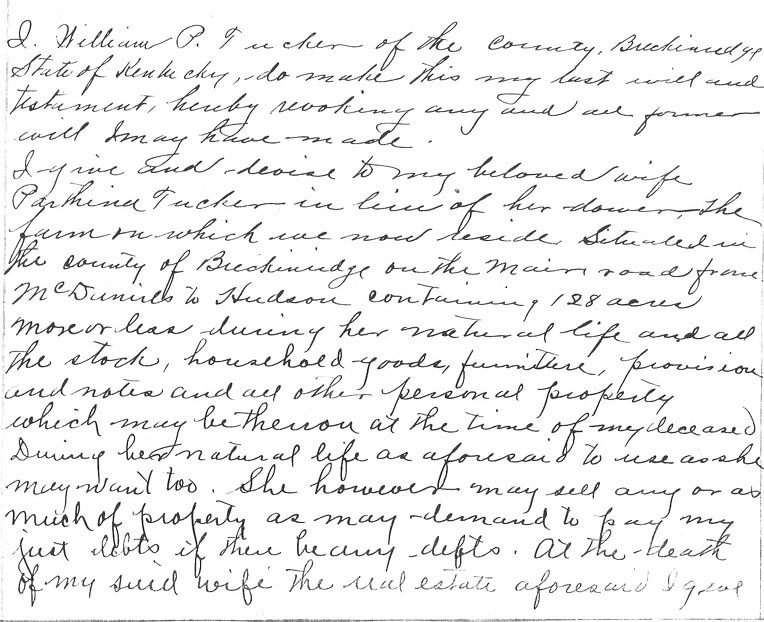 I. William P. Tucker of the county, Breckinridge
State of Kentucky, do make this my last will and
testament, hereby revoking any and all former
will I may have made.
I give and devise to my beloved wife
Parthina Tucker in lieu of her dower, the
farm on which we now reside Situated in
the county of Breckinridge on the Main road from
McDaniels to Hudson containing 128 acres
more or less during her natural life and all
the stock, household goods, furniture, provision
and notes and all other personal property
which may be thereon at the time of my deceased
During her natural life as aforesaid to use as she
may want too. She however may sell any or as
much of property as may demand to pay my
just debts if there be any defts. At the death
of my said wife the real estate aforesaid I give